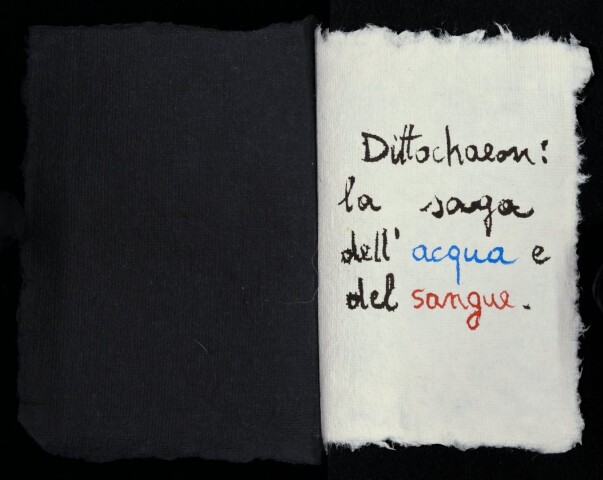 Dittochaeon:
la saga
dell' acqua e
del sangue.